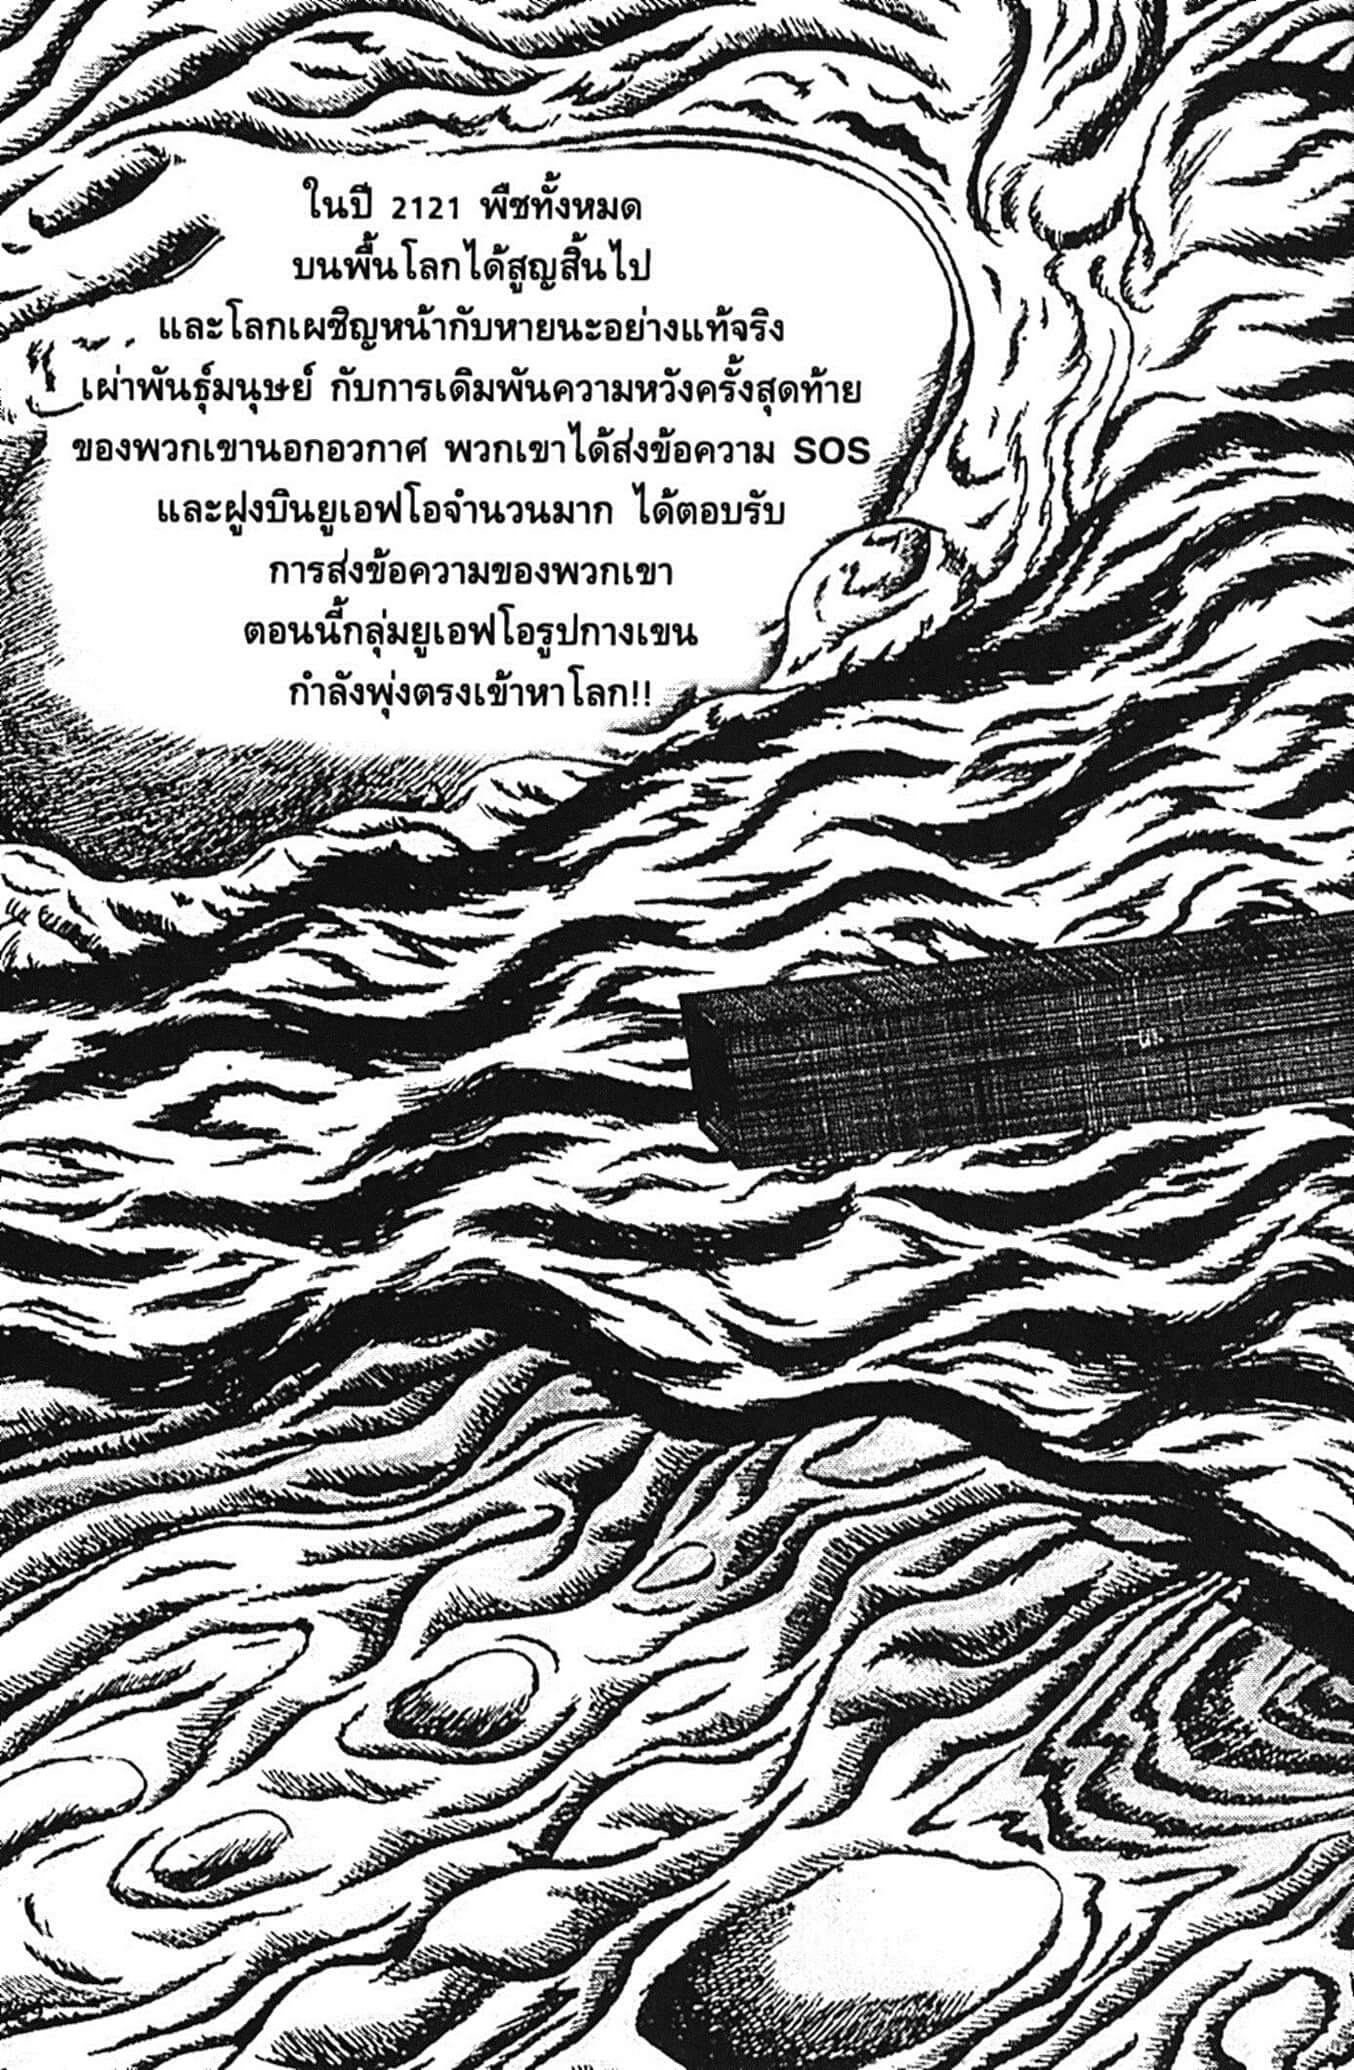 ในปี 2121 พืชทั้งหมด
บนพื้นโลกได้สูญสิ้นไป
และโลกเผชิญหน้ากับหายนะอย่างแท้จริง
เผ่าพันธุ์มนุษย์ กับการเดิมพันความหวังครั้งสุดท้าย
ของพวกเขานอกอวกาศ พวกเขาได้ส่งข้อความ SOS
และฝูงบินยูเอฟโอจำนวนมาก ได้ตอบรับ
การส่งข้อความของพวกเขา
ตอนนี้กลุ่มยูเอฟโอรูปกางเขน
กำลังพุ่งตรงเข้าหาโลก!!